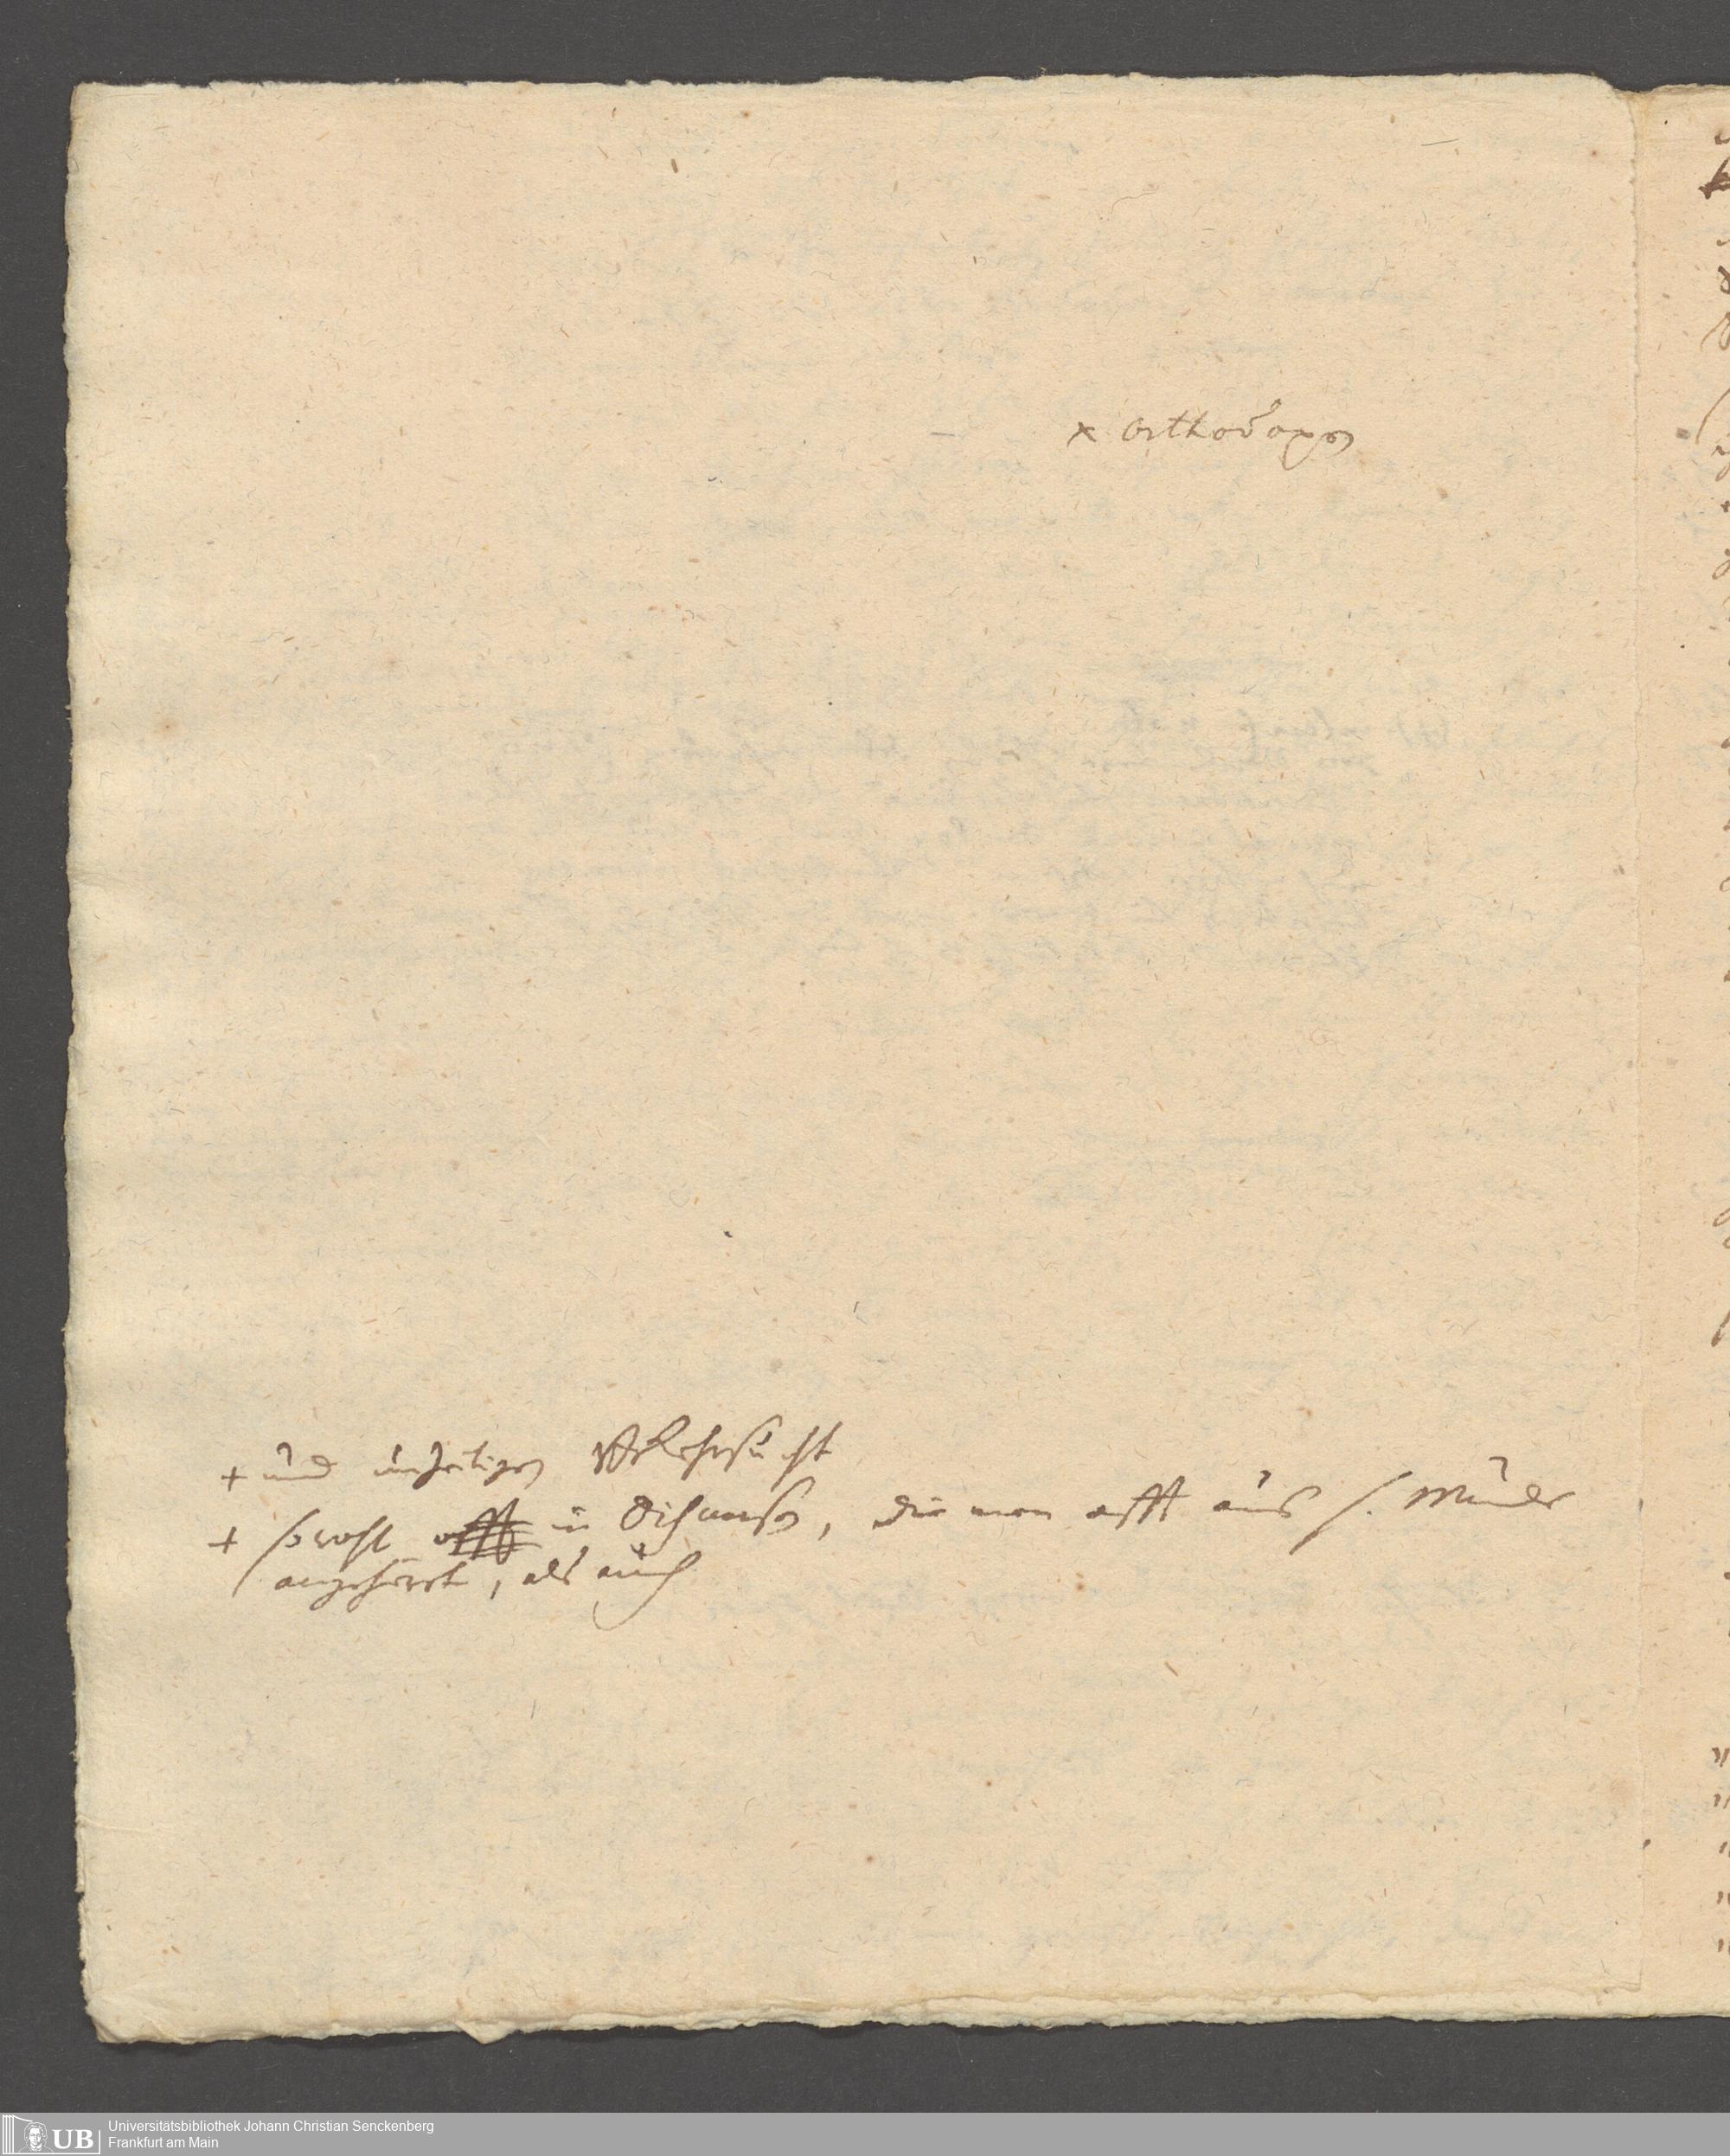 x orthodoxen
+ und unzeitigen
+ sowohl offt in Discursen, die man offt aus s. Munde
angehöret, als auch
UB Universitätsbibliothek Johann Christian Senckenberg
Frankfurt am Main